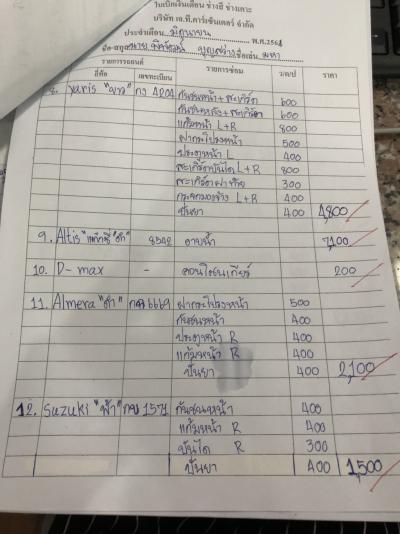 ใบเบิกเงินเดือน ช่างสี ช่างเคาะ
บริษัท เอ.ที.คาร์เซ็นเตอร์ จำกัด
ประจำเดือน มิถุนายน พ.ศ.256
ชื่อ-สกุล นาย บุญสว่าง ชื่อเล่น มหา
รายการรถยนต์ รายการซ่อม ว/ด/ป ราคา
ยี่ห้อ เลขทะเบียน
8. Yaris "ขาว" กง 4204 กันชนหน้า+สเกิร์ต 600
กันชนหลัง+สเกิร์ต 600
แก้มหน้า L+R 800
ฝากระโปรงหน้า 500
ประตูหน้า L 400
สเกิร์ตบันได L+R 800
สเกิร์ตฝาท้าย 300
กระจกมองข้าง L+R 400
ปั่นยา 400 4,800
9. Altis "แท็กซี่" 8542 อาบน้ำ 7,100
10. D-max - คอนโซนเกียร์ 200
11. Almera "ดำ" 6669 ฝากระโปรงหน้า 500
กันชนหน้า 400
ประตูหน้า R 400
แก้มหน้า R 400
ปั่นยา 400 2,100
12. Suzuki "ฟ้า" กบ 1571 กันชนหน้า 400
แก้มหน้า R 400
บันได R 300
ปั่นยา 400 1,500